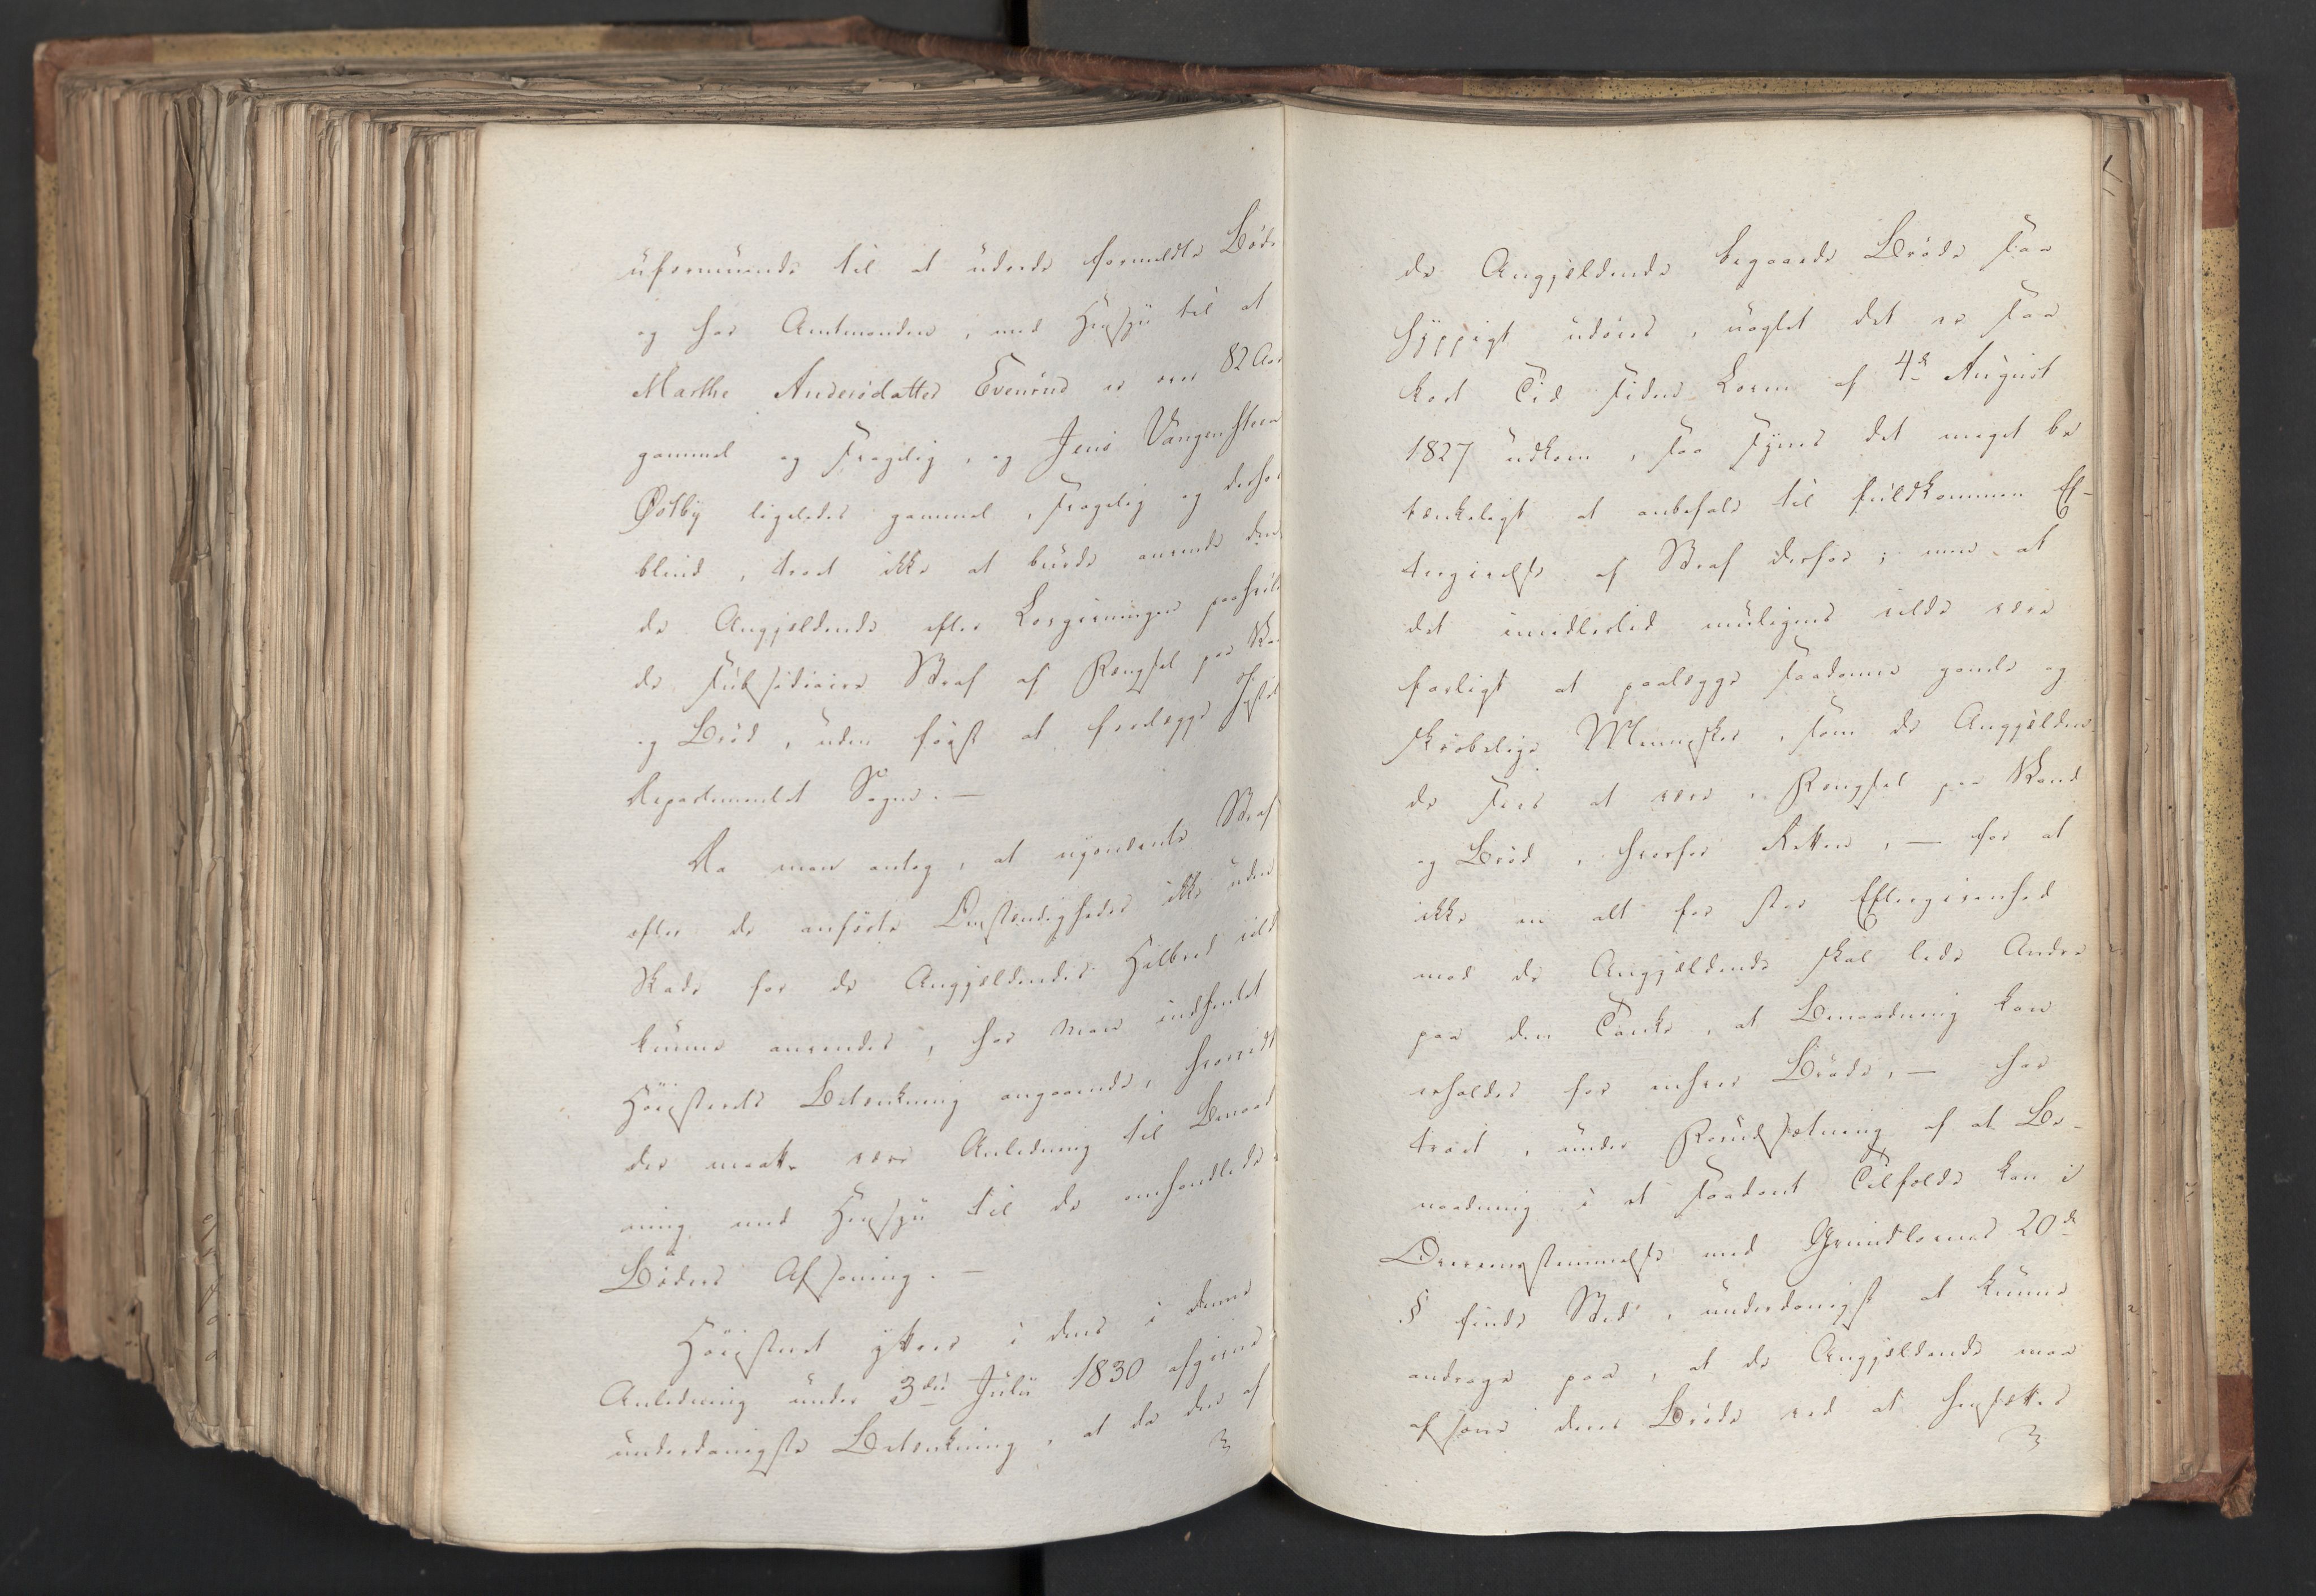 uformuende til at udrede formeldte Bøde
og har Amtmanden, med Hensyn til at
Marthe Andersdatter Evenrud er over 82 Aar
gammel og svagelig, og Jens Vangensteen
Østby ligeledes gammel, svagelig og derhos
blind, troet ikke at burde anvende den
de Angjeldende efter Lovgivningen paahvilen
de subsidiaire Straf af Fængsel paa Vand
og Brød, uden først at forelægge Justits
Departementet Sagen. —
Da man antog, at nysnævnte Straf
efter de anførte Omstændigheder ikke uden
Skade for de Angjeldendes Helbred vilde
kunne anvendes, har man indhentet
Höiesterets Betænkning angaaende, hvorvidt
der maatte være Anledning til Benaad
ning med Hensyn til de omhandlede
Bøders Afsoning. —
Höiesteret yttrer i dens i denne
Anledning under 3die Julii 1830 afgivne
underdanigste Betænkning, at da den af
de Angjeldende begaaede Brøde saa
hyppigt udøves, uagtet det er saa
kort Tid siden Loven af 4de August
1827 udkom, saa synes det meget be
tænkeligt at anbefale til fuldkommen Ef-
tergivelse af Straf derfor; men at
det imidlertid muligens vilde være
farligt at paalægge saadanne gamle og
skrøbelige Mennesker, som de Angjelden
de sees at være, Fængsel paa Vand
og Brød, hvorfor Retten, — for at
ikke en alt for stor Eftergivenhed
mod de Angjældende skal lede Andre
paa den Tanke, at Benaadning kan
erholdes for enhver Brøde, — har
troet, under Forudsætning af at Be-
naadning i et saadant Tilfælde kan i
Overensstemmelse med Grundlovens 20de
§ finde Sted, underdanigst at kunne
andrage paa, at de Angjeldende maa
afsone deres Brøde ved at hensættes